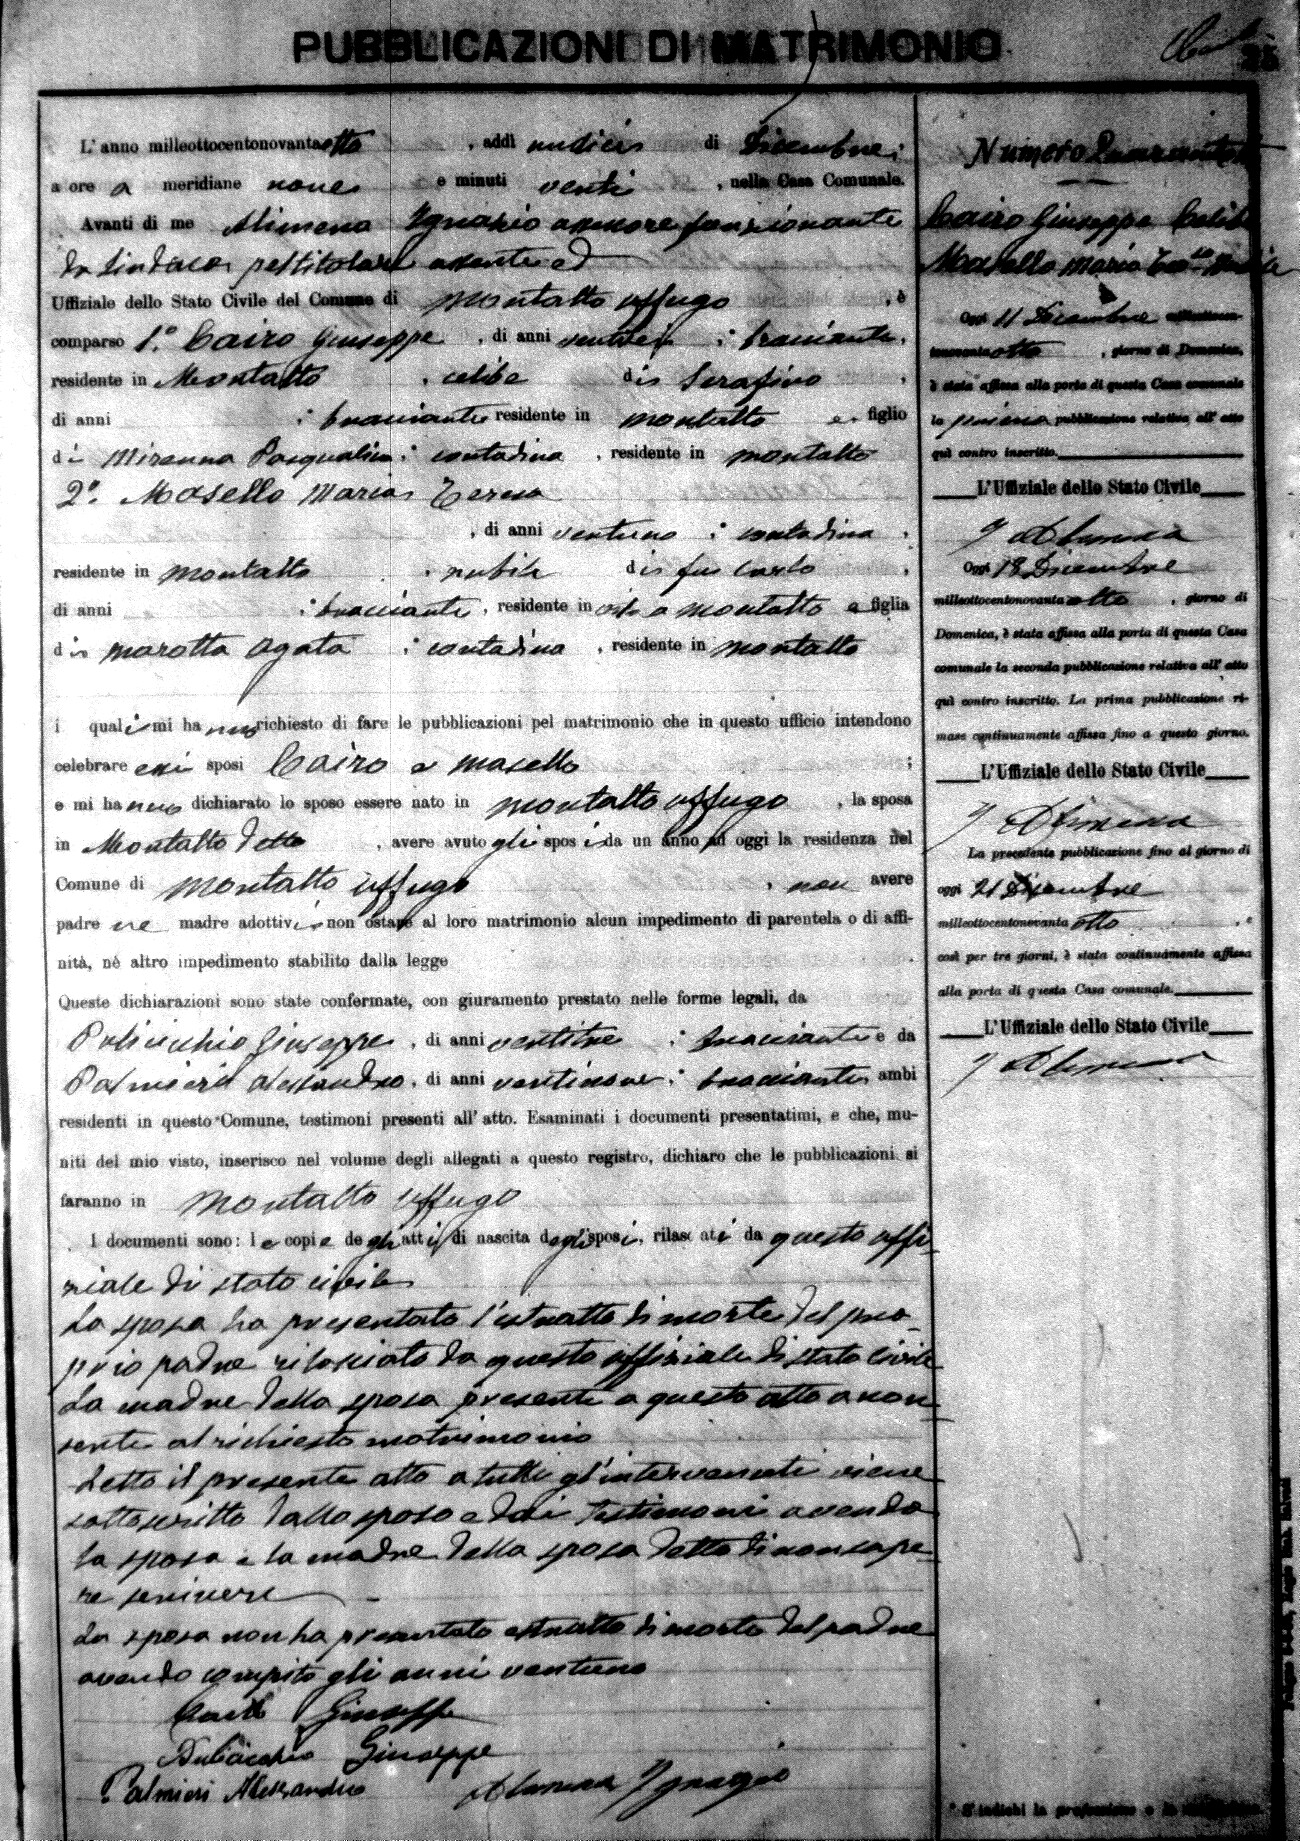 PUBBLICAZIONI DI MATRIMONIO
25
L'anno milleottocentonovantaotto, addì undici di Dicembre;
a ore a meridiane nove e minuti venti, nella Casa Comunale.
Avanti di me Alimena Ignazio assessore funzionante
da Sindaco pel titolare assente ed
Uffiziale dello Stato Civile del Comune di Montalto Uffugo, è
comparso 1.° Cairo Giuseppe, di anni ventisei; bracciante,
residente in Montalto, celibe di Serafino,
di anni ; bracciante residente in Montalto e figlio
di Mirenna Pasqualina; contadina, residente in Montalto
2.° Masello Maria Teresa
, di anni ventuno; contadina,
residente in Montalto, nubile di fu Carlo,
di anni ; bracciante, residente in a Montalto e figlia
di Marotta Agata; contadina, residente in Montalto
i quali mi hanno richiesto di fare le pubblicazioni pel matrimonio che in questo ufficio intendono
celebrare essi sposi Cairo e Masello;
e mi hanno dichiarato lo sposo essere nato in Montalto Uffugo, la sposa
in Montalto detto, avere avuto gli sposi da un anno ad oggi la residenza nel
Comune di Montalto Uffugo, non avere
padre ne madre adottivi non ostare al loro matrimonio alcun impedimento di parentela o di affi-
nità, nè altro impedimento stabilito dalla legge
Queste dichiarazioni sono state confermate, con giuramento prestato nelle forme legali, da
Policicchio Giuseppe, di anni ventitre; bracciante e da
Palmieri Alessandro, di anni ventinove; bracciante ambi
residenti in questo Comune, testimoni presenti all'atto. Esaminati i documenti presentatimi, e che, mu-
niti del mio visto, inserisco nel volume degli allegati a questo registro, dichiaro che le pubblicazioni si
faranno in Montalto Uffugo
I documenti sono: le copie degli atti di nascita degli sposi, rilasciati da questo uffi-
ziale di stato civile
La sposa ha presentato l'estratto di morte del pro-
prio padre rilasciato da questo uffiziale di stato civile
La madre della sposa presente a questo atto acon-
sente al richiesto matrimonio
Letto il presente atto a tutti gl'intervenuti viene
sottoscritto dallo sposo e dai testimoni avendo
la sposa e la madre della sposa detto di non sape-
re scrivere
La sposa non ha presentato estratto di morte del padre
avendo compito gli anni ventuno
Cairo Giuseppe
Policicchio Giuseppe
Palmieri Alessandro Alimena Ignazio
Numero Quarantotto
Cairo Giuseppe Celibe
Masello Maria Teresa Nubile
Oggi 11 Dicembre milleottocen-
tonovantaotto, giorno di Domenica,
è stata affissa alla porta di questa Casa comunale
la prima pubblicazione relativa all'atto
quì contro inscritto.
L'Uffiziale dello Stato Civile
I Alimena
Oggi 18 Dicembre
milleottocentonovantaotto, giorno di
Domenica, è stata affissa alla porta di questa Casa
comunale la seconda pubblicazione relativa all'atto
quì contro inscritto. La prima pubblicazione ri-
mase continuamente affissa fino a questo giorno.
L'Uffiziale dello Stato Civile
I Alimena
La precedente pubblicazione fino al giorno di
oggi 21 Dicembre
milleottocentonovantaotto, e
così per tre giorni, è stata continuamente affissa
alla porta di questa Casa comunale.
L'Uffiziale dello Stato Civile
I Alimena
* S'indichi la professione o la